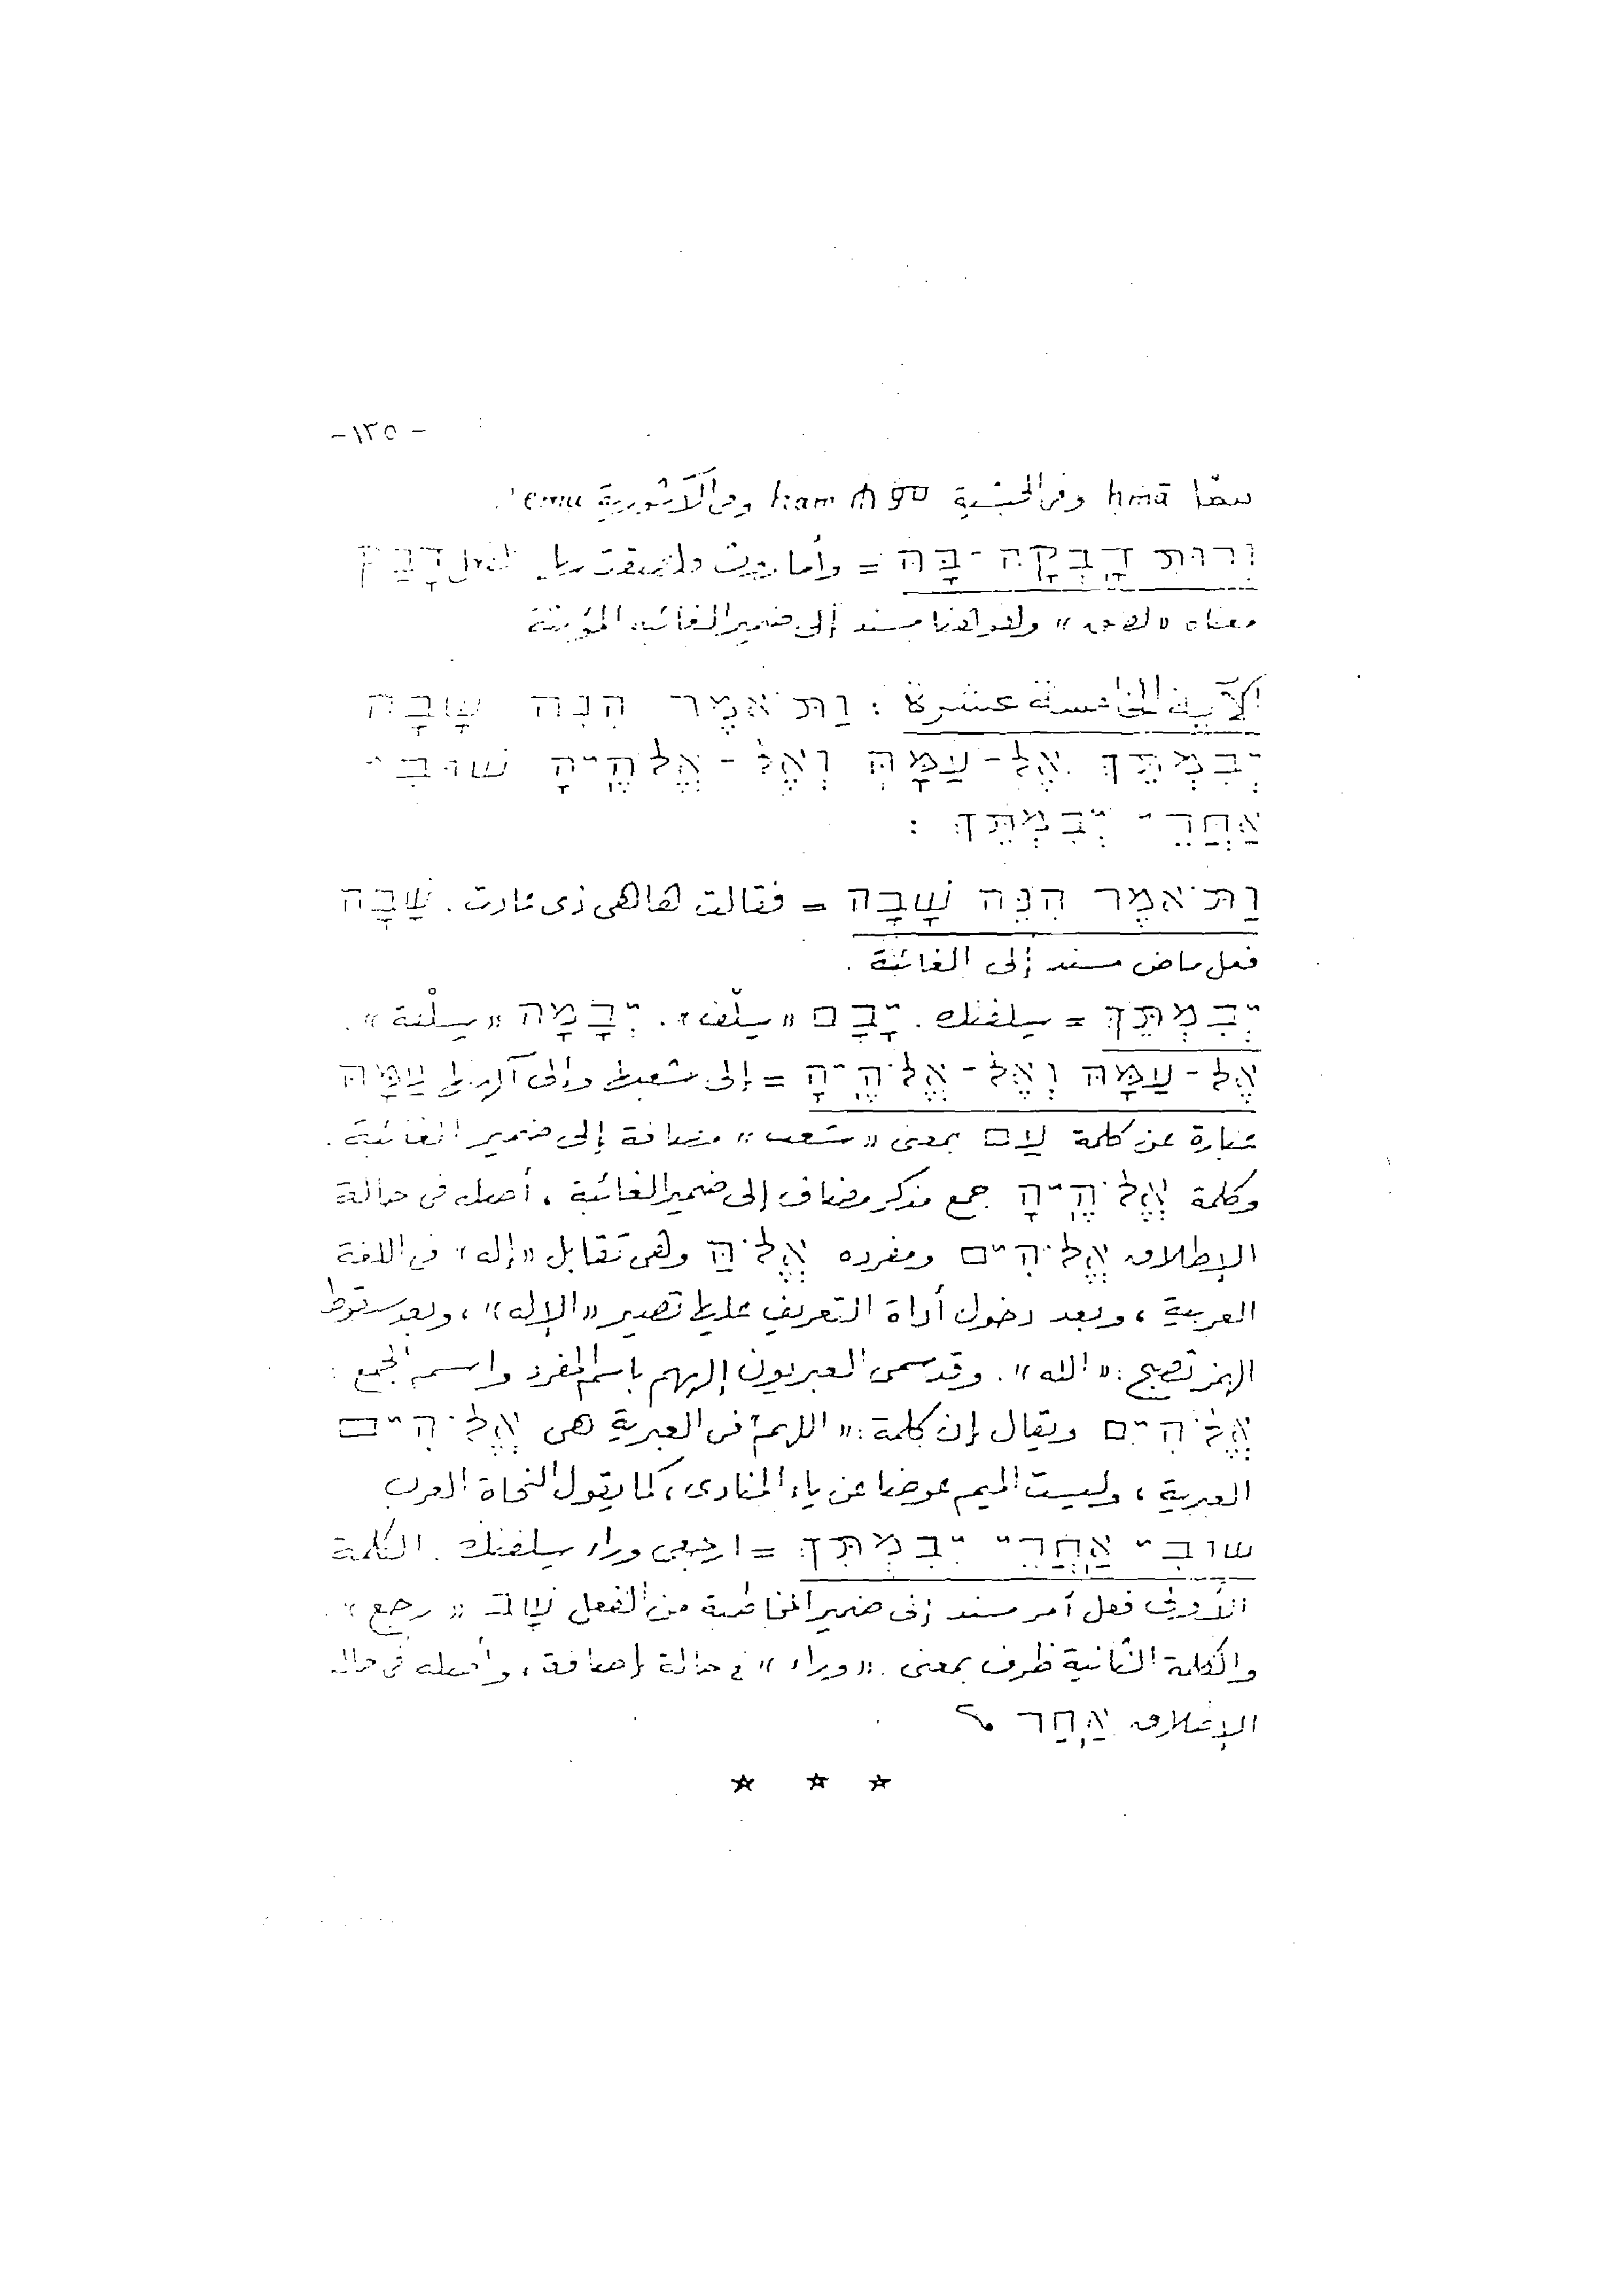 - ١٢٥ -
حمًا ḥmā وفى الحبشية ḥam وفى الآشورية emu.
וְרוּת דָּבְקָה־בָּהּ = وأما روث فالتصقت بها. الفعل דָּבַק
معناه «لصق» وهو هنا مسند إلى ضمير الغائبة المؤنثة
الآية الخامسة عشرة : וַתֹּאמֶר הִנֵּה שָׁבָה
יְבִמְתֵּךְ אֶל-עַמָּהּ וְאֶל-אֱלֹהֶיהָ שׁוּבִי
אַחֲרֵי יְבִמְתֵּךְ :
וַתֹּאמֶר הִנֵּה שָׁבָה = فقالت هاهى ذى عادت. שָׁבָה
فعل ماض مسند إلى الغائبة.
יְבִמְתֵּךְ = سلفتك. יָבָם «سلْف». יְבָמָה «سلْفة».
אֶל-עַמָּהּ וְאֶל-אֱלֹהֶיהָ = إلى شعبها وإلى آلهتها עַמָּהּ
عبارة عن كلمة עַם بمعنى «شعب» مضافة إلى ضمير الغائبة.
وكلمة אֱלֹהֶיהָ جمع مذكر مضاف إلى ضمير الغائبة، أصله فى حالة
الإطلاق אֱלֹהִים ومفرده אֱלֹהַּ وهى تقابل «إله» فى اللغة
العربية، وبعد دخول أداة التعريف عليها تصير «الإله»، وبعد سقوط
الهمز تصبح: «الله». وقد سمى العبريون إلههم باسم المفرد واسم الجمع:
אֱלֹהִים ويقال إن كلمة: «اللهم» فى العبرية هى אֱלֹהִים
العبرية، وليست الميم عوضا عن ياء المنادى، كما يقول النحاة العرب
שׁוּבִי אַחֲרֵי יְבִמְתֵּךְ = ارجعى وراء سلفتك. الكلمة
الأولى فعل أمر مسند إلى ضمير المخاطبة من الفعل שׁוּב «رجع».
والكلمة الثانية ظرف بمعنى «وراء» فى حالة إضافة، وأصله فى حالة
الإطلاق אַחַר
☆ ☆ ☆